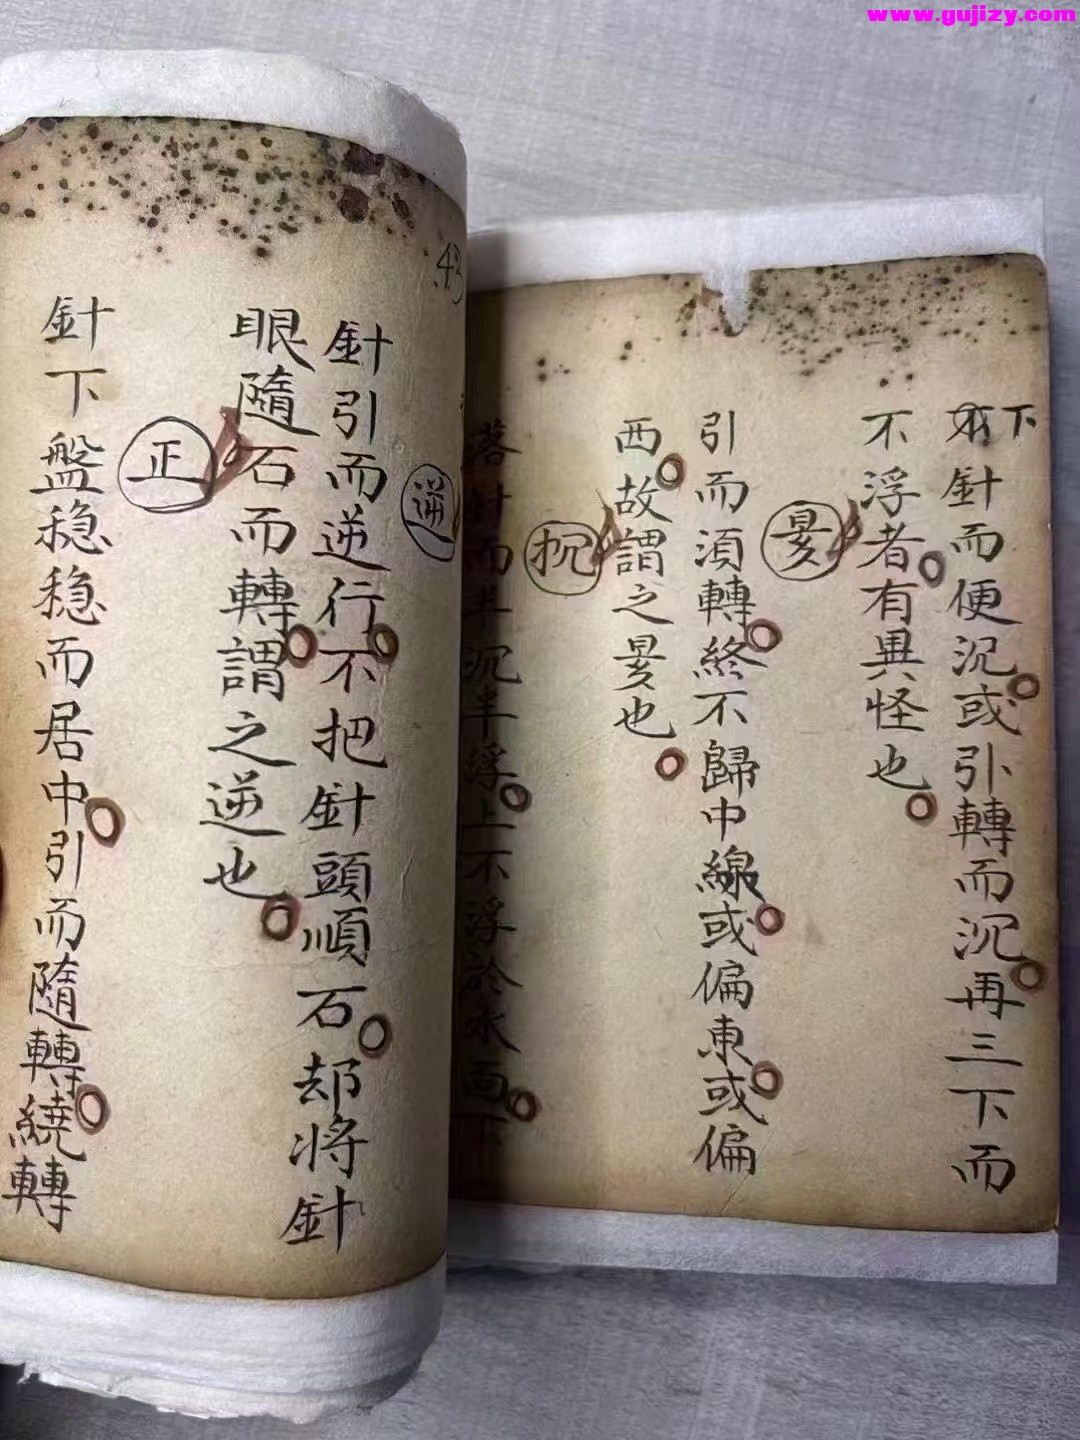 www.gujizy.com
下針而便沉或引轉而沉再三下而
不浮者有異怪也
引而須轉終不歸中線或偏東或偏
西故謂之也
落針而半沉半浮上不浮於水面下
43
逆
針引而逆行不把針頭順石却將針
眼隨石而轉謂之逆也
正
針下盤稳稳而居中引而隨轉繞轉